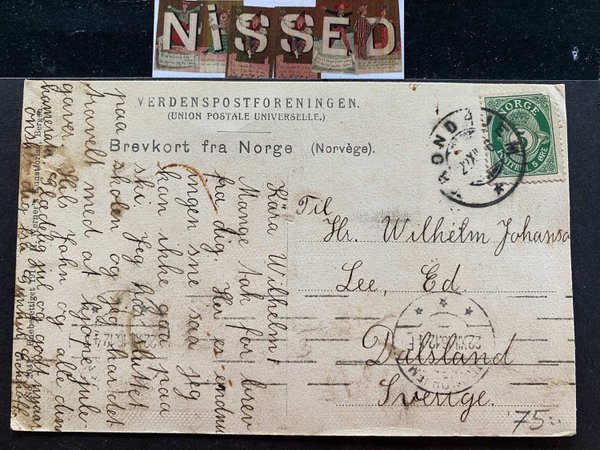 NiSSED
VERDENSPOSTFORENINGEN.
(UNION POSTALE UNIVERSELLE.)
Brevkort fra Norge (Norvège).
NORGE
5 ØRE
Til
Hr. Wilhelm Johansa
Lee, Ed
Dalsland
Sverige.
75
Kära Wilhelm!
Mange tak for brev
fra dig. Her er endnu
ingen sne saa jeg
kan ikke gaa paa
ski. Jeg har sluttet
paa skolen og jeg har det
travelt med at kjøpe jule-
gaver. Hils John og alle dine
kamerater. Glædelig jul og godt nytaar